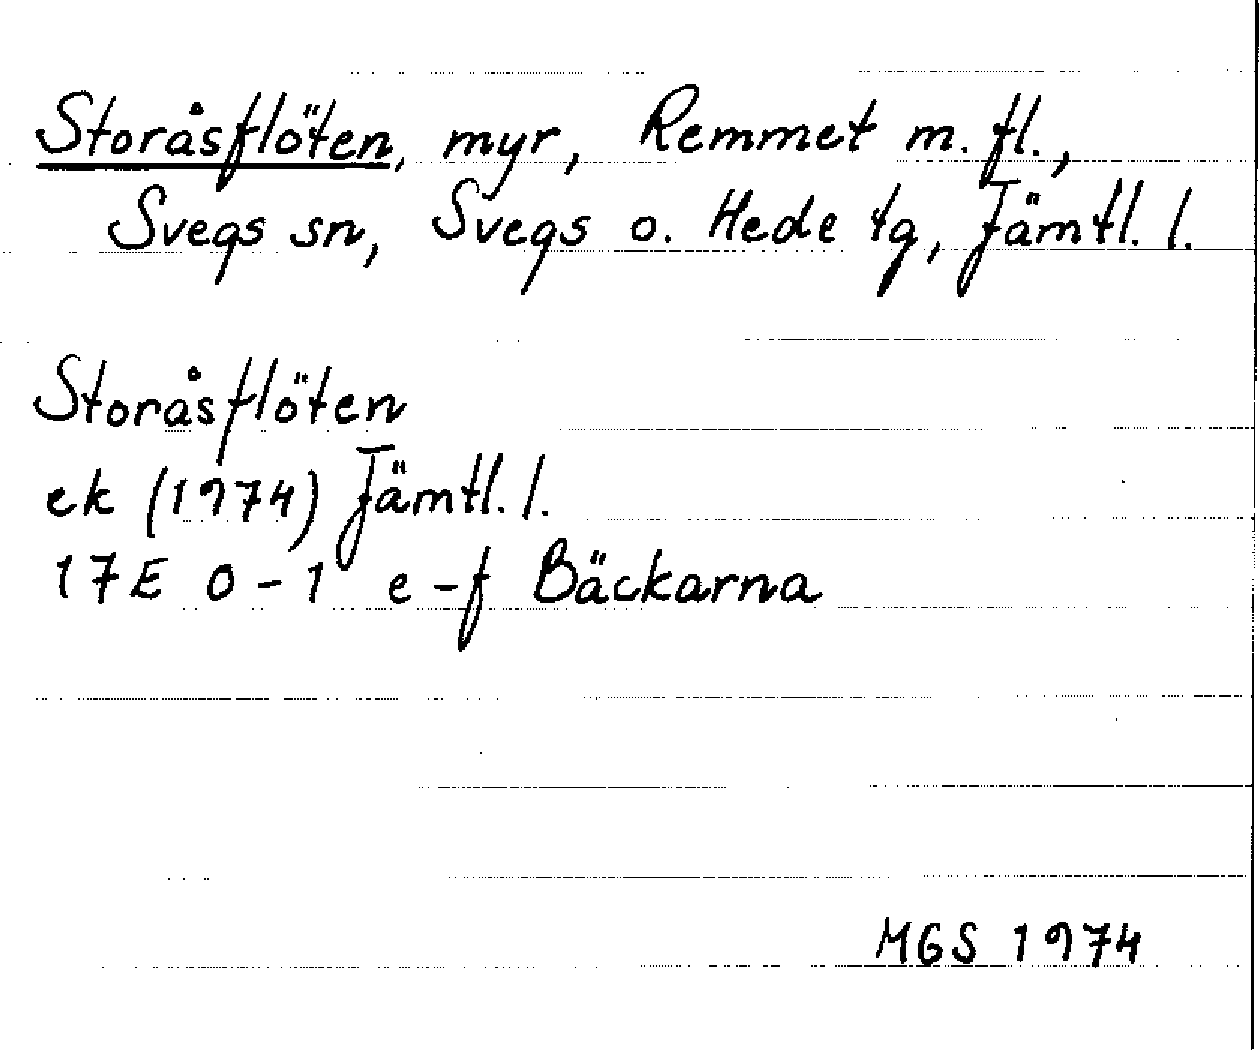 Storåsflöten, myr, Remmet m. fl.,
Svegs sn, Svegs o. Hede tg, Jämtl. l.
Storåsflöten
ek (1974) Jämtl. l.
17E 0-1 e-f Bäckarna
MGS 1974